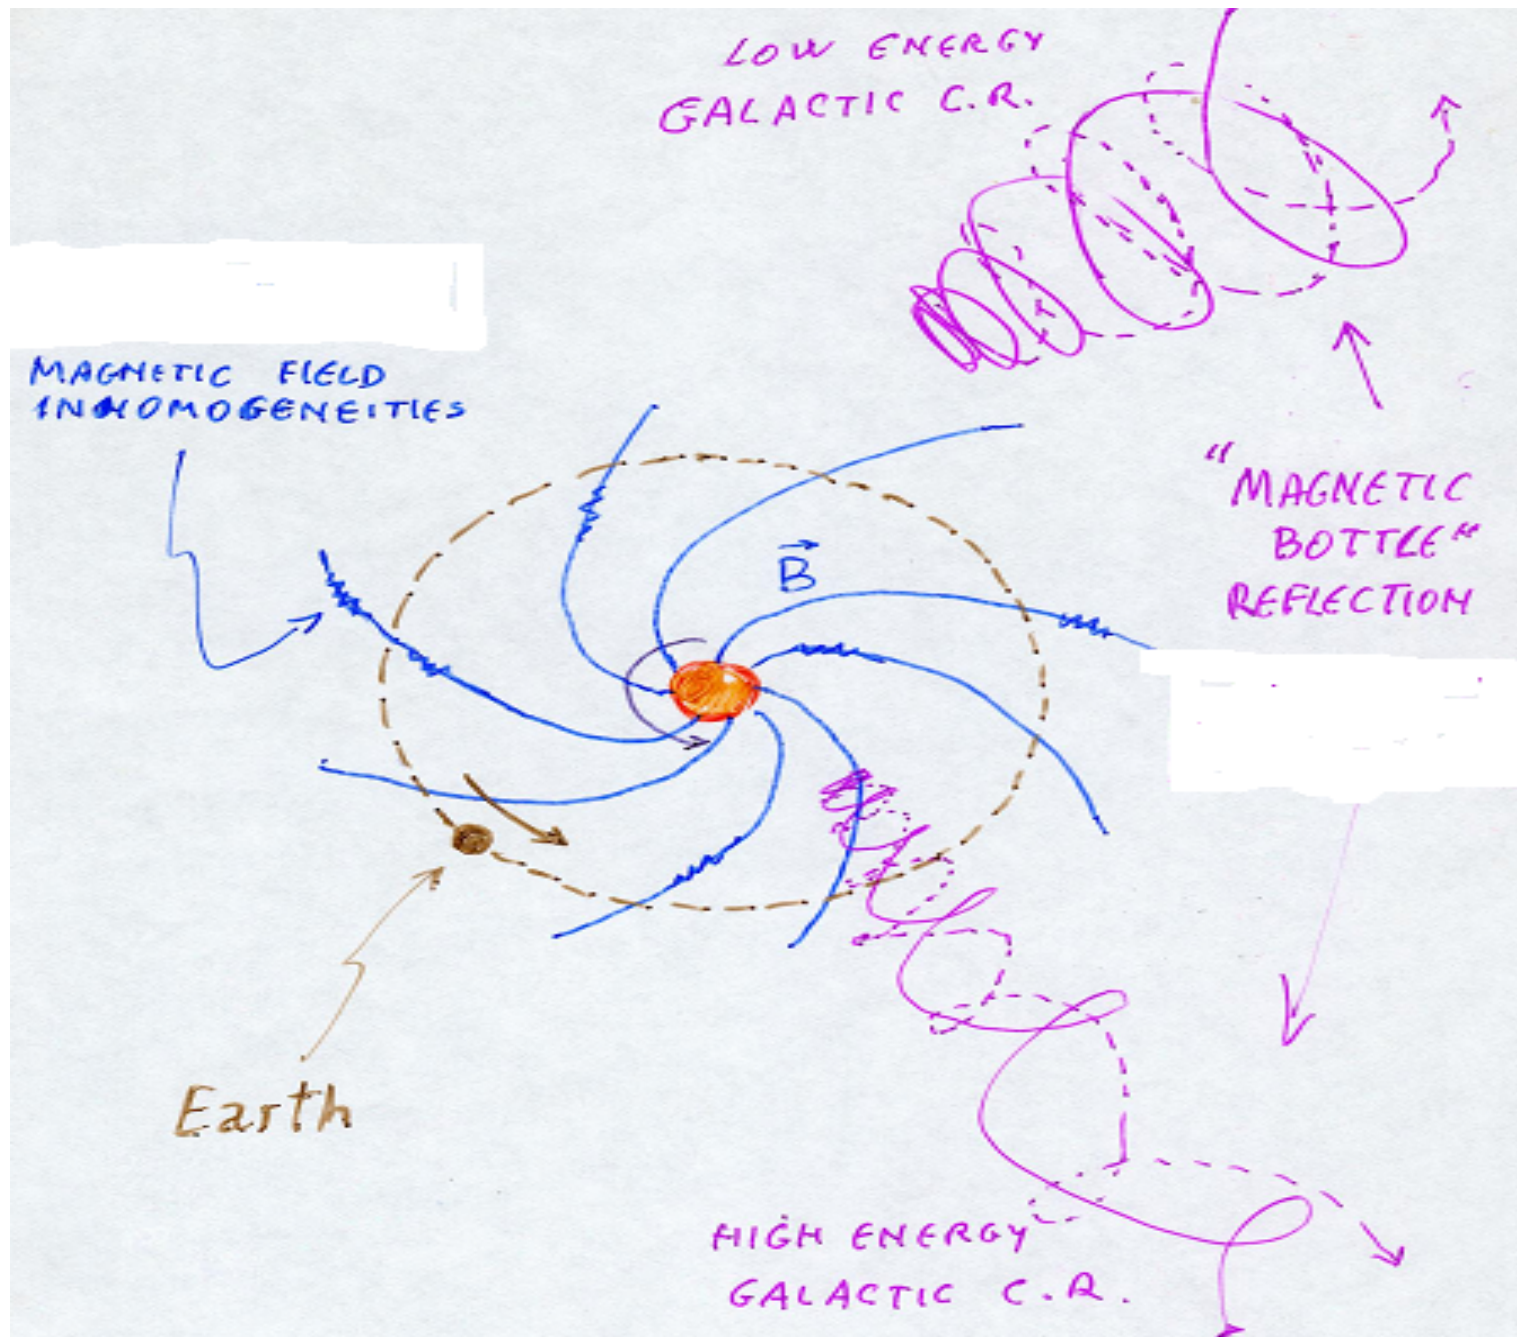 LOW ENERGY
GALACTIC C.R.
MAGNETIC FIELD
INHOMOGENEITIES
"MAGNETIC
BOTTLE"
REFLECTION
B
Earth
HIGH ENERGY
GALACTIC C.R.